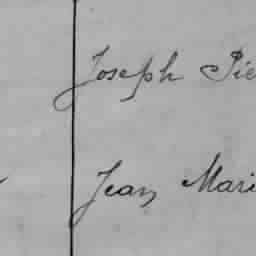 Joseph Pie
Jean Mari